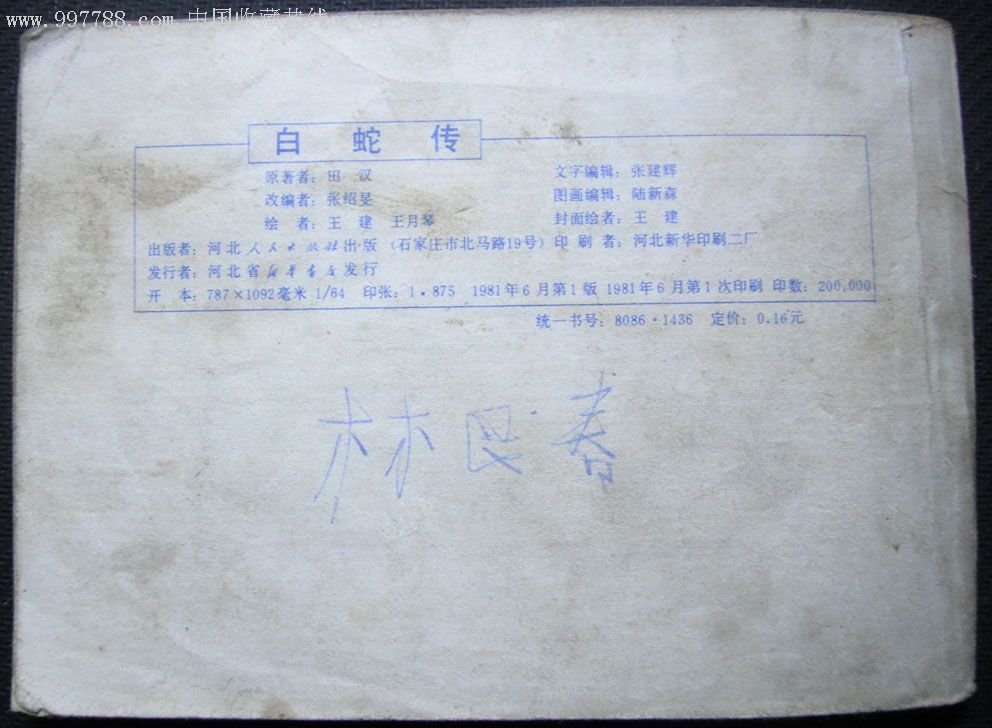 www.997788.com 中国收藏热线
白 蛇 传
原著者：田 汉 文字编辑：张建辉
改编者：张绍旻 图画编辑：陆新森
绘 者：王 建 王月琴 封面绘者：王 建
出版者：河北人民出版社出版（石家庄市北马路19号）印 刷 者：河北新华印刷二厂
发行者：河北省新华书店发行
开 本：787×1092毫米 1/64 印张：1.875 1981年6月第1版 1981年6月第1次印刷 印数：200,000
统一书号：8086·1436 定价：0.16元
林 春